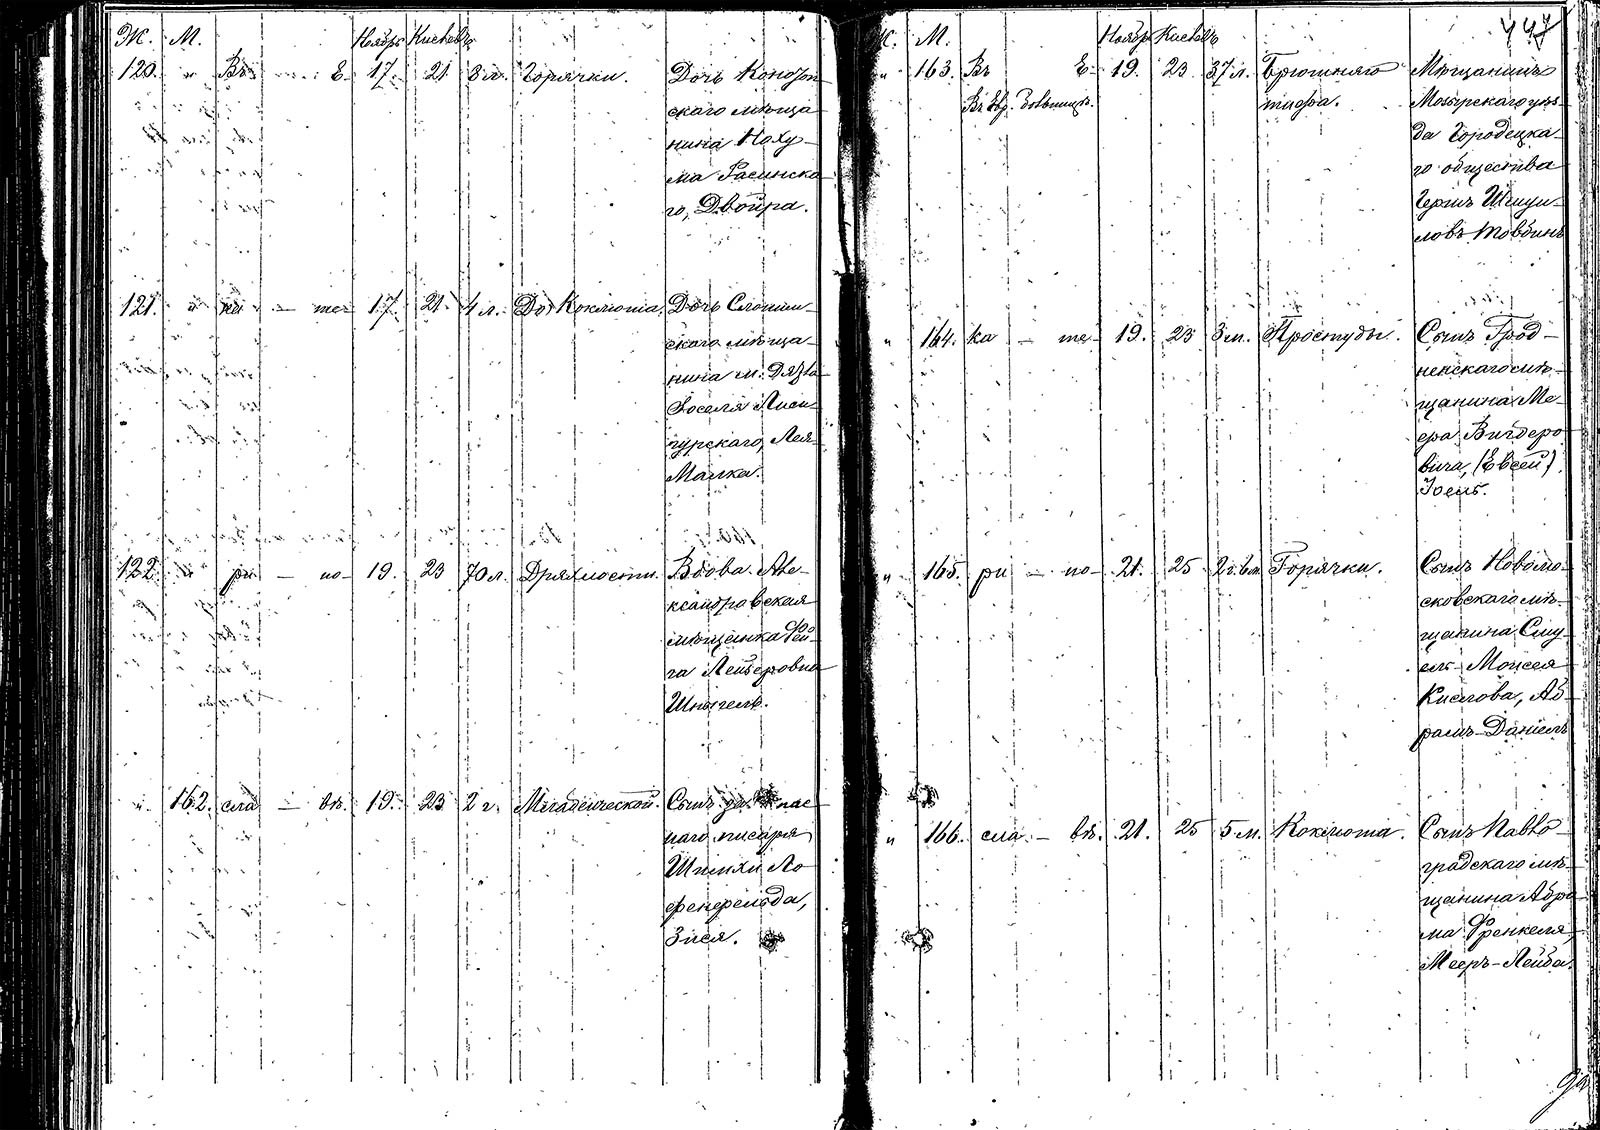 Ж. М. Ноябрь Кислевъ
120. " Въ Е- 17. 21 3 л. Горячки. Дочь Конотоп-
скаго мѣща-
нина Наху-
ма Расинска-
го, Двойра.
121. " ка - те- 17. 21. 4 л. Отъ Коклюша. Дочь Слоним-
скаго мѣща-
нина м.
Іоселя
Лея-
Малка.
122. " ри - но- 19. 23 70 л. Дряхлости. Вдова Але-
ксандровская
мѣщанка Фей-
га Лейзеровна
Шпигель.
" 162. сла - вѣ. 19. 23 2 г. Сынъ запас-
наго писаря
Зися.
Ж. М. Ноябрь Кислевъ 447
" 163. Въ Е- 19. 23 37 л. Брюшнаго Мѣщанинъ
Въ Евр. больницѣ. тифа. Мозырскаго уѣз-
да Городецка-
го общества
Гершъ Шмуй-
ловъ Товбинъ
" 164. ка - те- 19. 23 3 м. Простуды. Сынъ Грод-
ненскаго мѣ-
щанина Ме-
ера Вигдоро-
вича, (Евсей)
Іосиѣ.
" 165. ри - но- 21. 25 2 г. 6 м. Горячки. Сынъ Новомо-
сковскаго мѣ-
щанина Сму-
ель-Моисея
Кислова, Аб-
рамъ-Даніелъ
" 166. сла - вѣ. 21. 25 5 м. Коклюша. Сынъ Павло-
градскаго мѣ-
щанина Абра-
ма Френкеля,
Мееръ-Лейба.